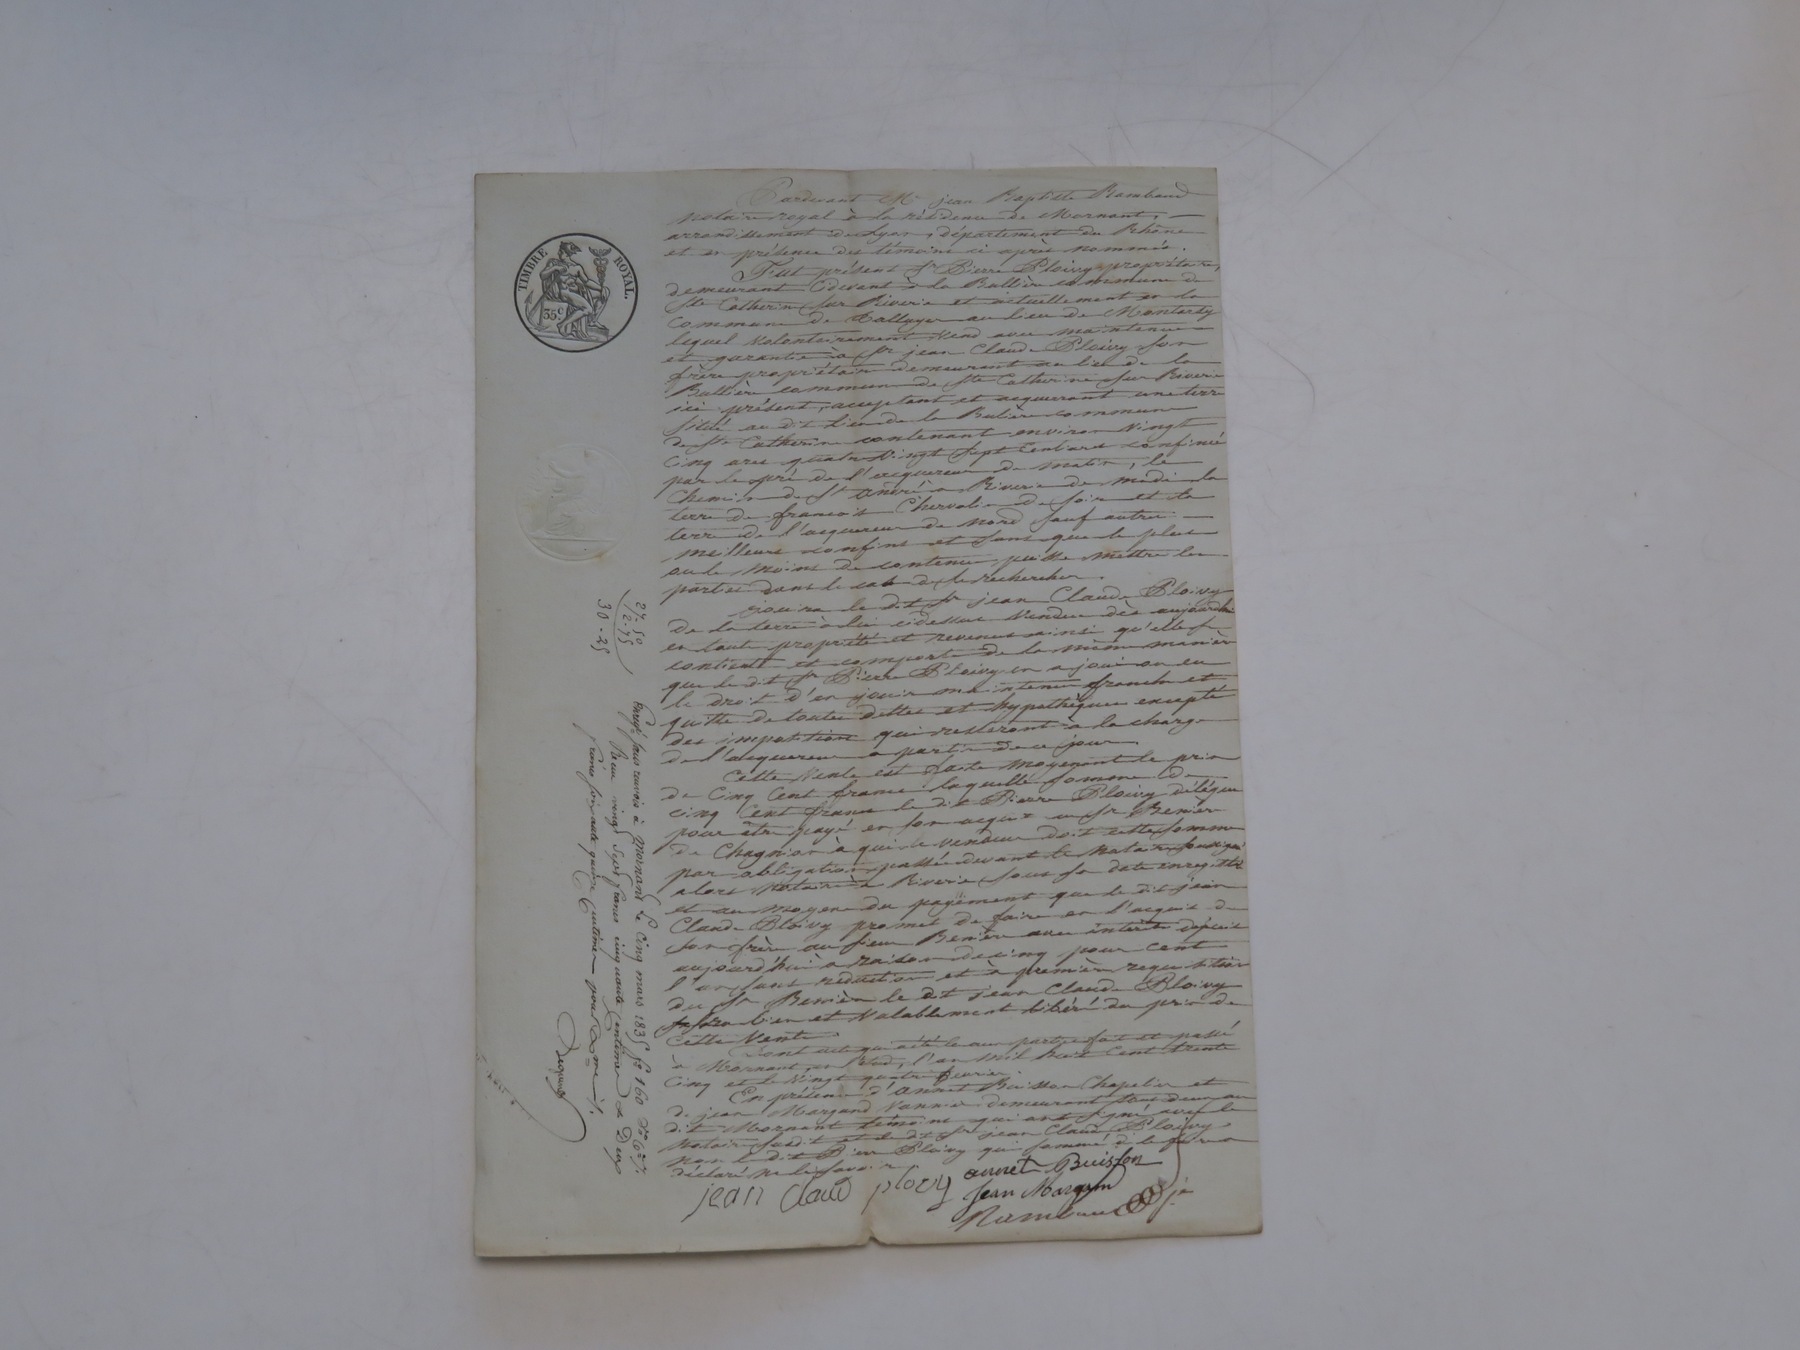 TIMBRE ROYAL.
35 c
Pardevant Me jean Baptiste Rambaud
Notaire royal à la résidence de Mornant,
arrondissement de Lyon, département du Rhône
et en présence des témoins ci après nommés.
Fut présent Sr Pierre Ploivy propriétaire,
demeurant cidevant à la Bullière commune de
Ste Catherine sur Riverie et actuellement en la
commune de Talluyer au lieu de Montarly
lequel Volontairement Vend avec maintenue
et garantie à Sr jean Claude Ploivy son
frère propriétaire demeurant au lieu de la
Bullière commune de Ste Catherine sur Riverie
ici présent, acceptant et acquerant une terre
située au dit lieu de la Bulière commune
de Ste Catherine contenant environ Vingt
Cinq ares quatre Vingt Sept Centiares confinée
par le pré de l'acquereur de matin, le
Chemin de St André a Riverie de midi la
terre de francois Chervolin de soir et la
terre de l'acquereur de nord sauf autres
meilleurs confins et sans que le plus
ou le moins de contenue puisse mettre les
parties dans le cas de se rechercher.
jouira le dit Sr jean Claude Ploivy
de la terre à lui cidessus Vendue dès aujourdhui
en toute propriété et revenus ainsi qu'elle se
contient et comporte de la même manière
que le dit Sr Pierre Ploivy en a joui ou eu
le droit d'en jouir maintenue franche et
quitte de toutes dettes et hypothèques excepté
des impositions qui resteront à la charge
de l'acquereur a partir de ce jour.
Cette Vente est faite moyenant le prix
de Cinq Cent francs laquelle somme de
cinq Cent francs le dit Pierre Ploivy délègue
pour être payé en son acquit au Sr Benière
de Chagnon à qui le vendeur doit cette somme
par obligation passée devant le Notaire soussigné
alors Notaire à Riverie sous sa date enregistrée
et au moyen du payement que le dit jean
Claude Ploivy promet de faire en l'acquit de
son frère au sieur Benière avec intérêts depuis
aujourd'hui a raison de cinq pour cent
l'an sans réduction et à première requisition
du Sr Benière le dit jean Claude Ploivy
sera bien et Valablement libéré du prix de
cette Vente.
Dont acte qui a été lu aux parties fait et passé
à Mornant, en l'étude, l'an Mil huit Cent trente
Cinq et le Vingt quatre fevrier.
En présence d'Annet Buisson Chapelier et
de jean Margand Vannier demeurant tous deux au
dit Mornant témoins qui ont signé avec le
Notaire susdit et le dit Sr jean Claude Ploivy
non le dit Pierre Ploivy qui sommé de le faire a
déclaré ne le savoir.
jean Claud ploivy
annet Buisson
Jean Margand
Rambaud
27. 50
2. 75
30 - 25
Enregé sans renvois à Mornant le Cinq mars 1835 fo 160
Reçu vingt Sept francs cinquante Centimes & Deux
francs soixante quinze Centimes pour